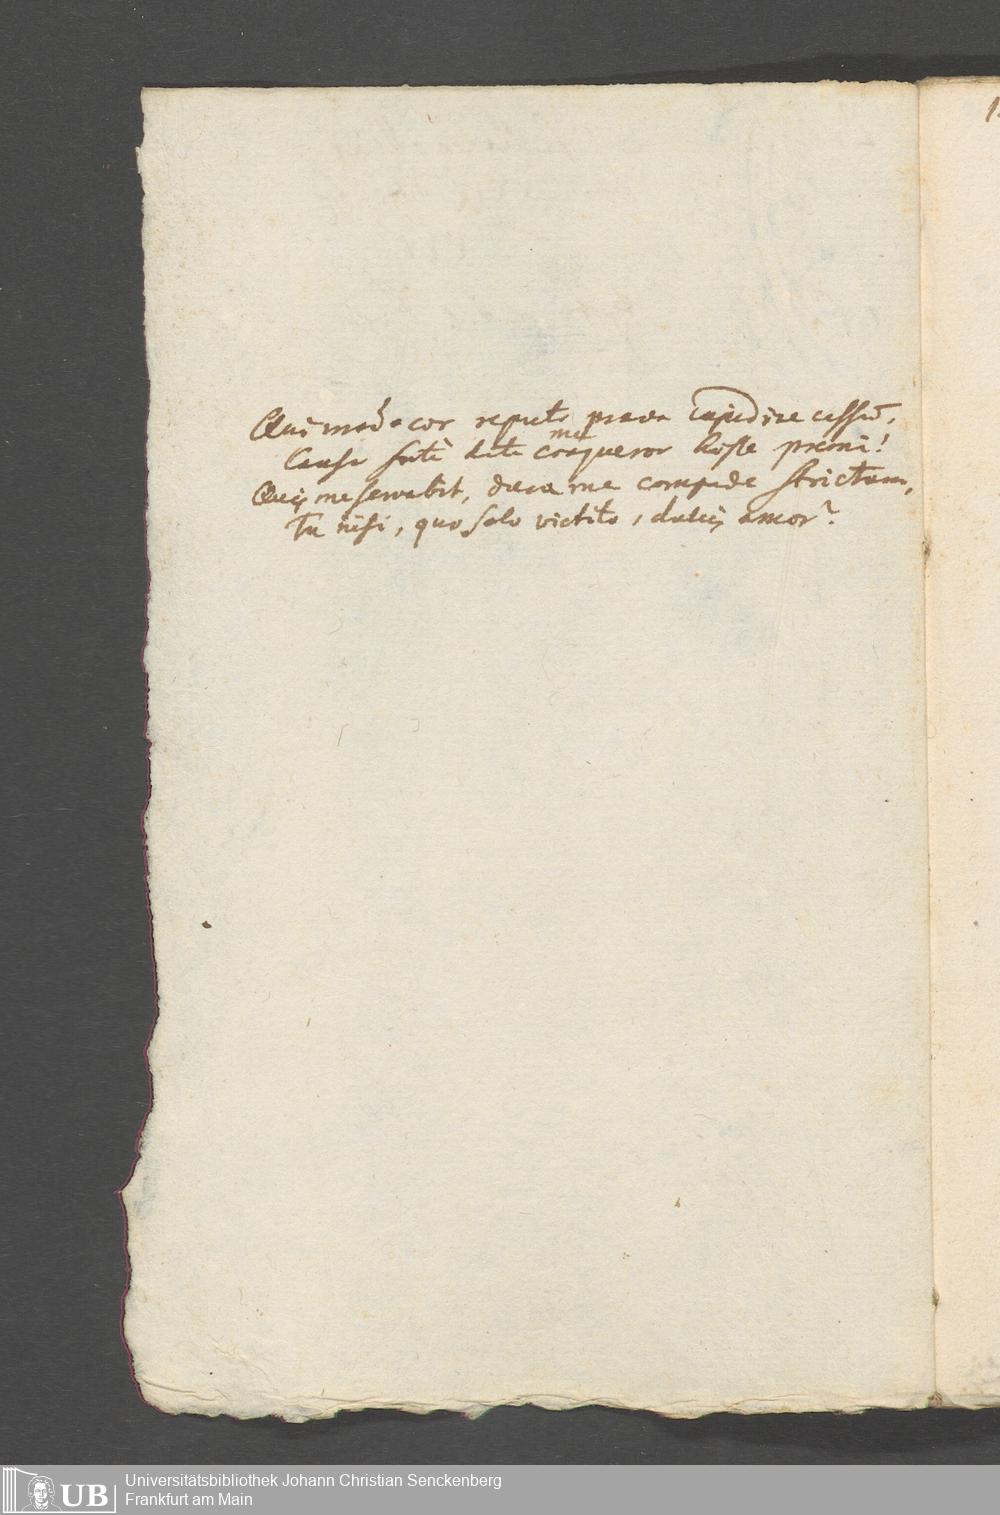 1
Qui modo cor reputo prava cupidine cessū,
me
Causa hoste premi!
Quis me servabit, dura me compede strictum,
Tu nisi, quo solo victito, dulcis amor?
UB
Universitätsbibliothek Johann Christian Senckenberg
Frankfurt am Main